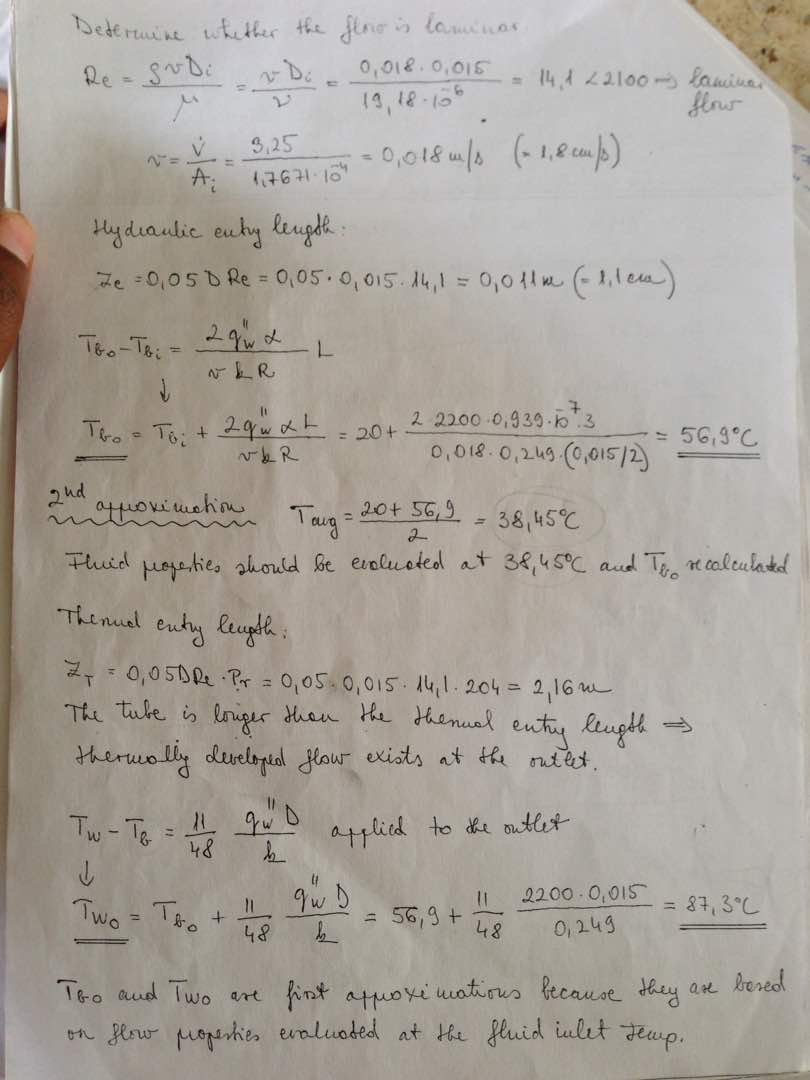 Determine whether the flow is laminar.
Re = ρvDi / μ = vDi / ν = 0,018 · 0,015 / 19,18 · 10⁻⁶ = 14,1 < 2100 → laminar flow
v = V̇ / Ai = 3,25 / 1,7671 · 10⁻⁴ = 0,018 m/s (= 1,8 cm/s)
Hydraulic entry length:
Ze = 0,05 D Re = 0,05 · 0,015 · 14,1 = 0,011 m (= 1,1 cm)
Tbo - Tbi = 2 q"w α / v k R L
↓
Tbo = Tbi + 2 q"w α L / v k R = 20 + 2 · 2200 · 0,939 · 10⁻⁷ · 3 / 0,018 · 0,249 · (0,015/2) = 56,9°C
2nd appoximation Tavg = 20 + 56,9 / 2 = 38,45°C
Fluid properties should be evaluated at 38,45°C and Tbo recalculated
Thermal entry length:
ZT = 0,05 D Re · Pr = 0,05 · 0,015 · 14,1 · 204 = 2,16 m
The tube is longer than the thermal entry length ⇒
thermally developed flow exists at the outlet.
Tw - Tb = 11/48 q"w D / k applied to the outlet
↓
Two = Tbo + 11/48 q"w D / k = 56,9 + 11/48 2200 · 0,015 / 0,249 = 87,3°C
Tbo and Two are first appoximations because they are based
on flow properties evaluated at the fluid inlet temp.